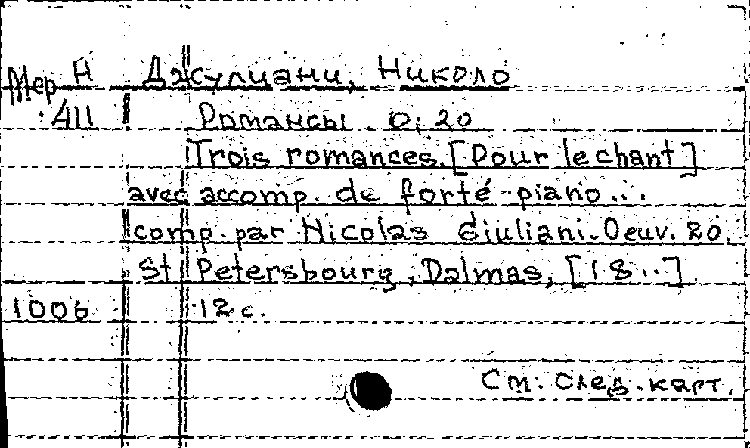 Мер Н Джулиани, Николо
411 Романсы. О. 20
Trois romances. [Pour le chant]
avec accomp. de forté-piano...
comp. par Nicolas Giuliani. Oeuv. 20.
St Petersbourg, Dalmas, [18..]
1006 12 с.
См. след. карт.